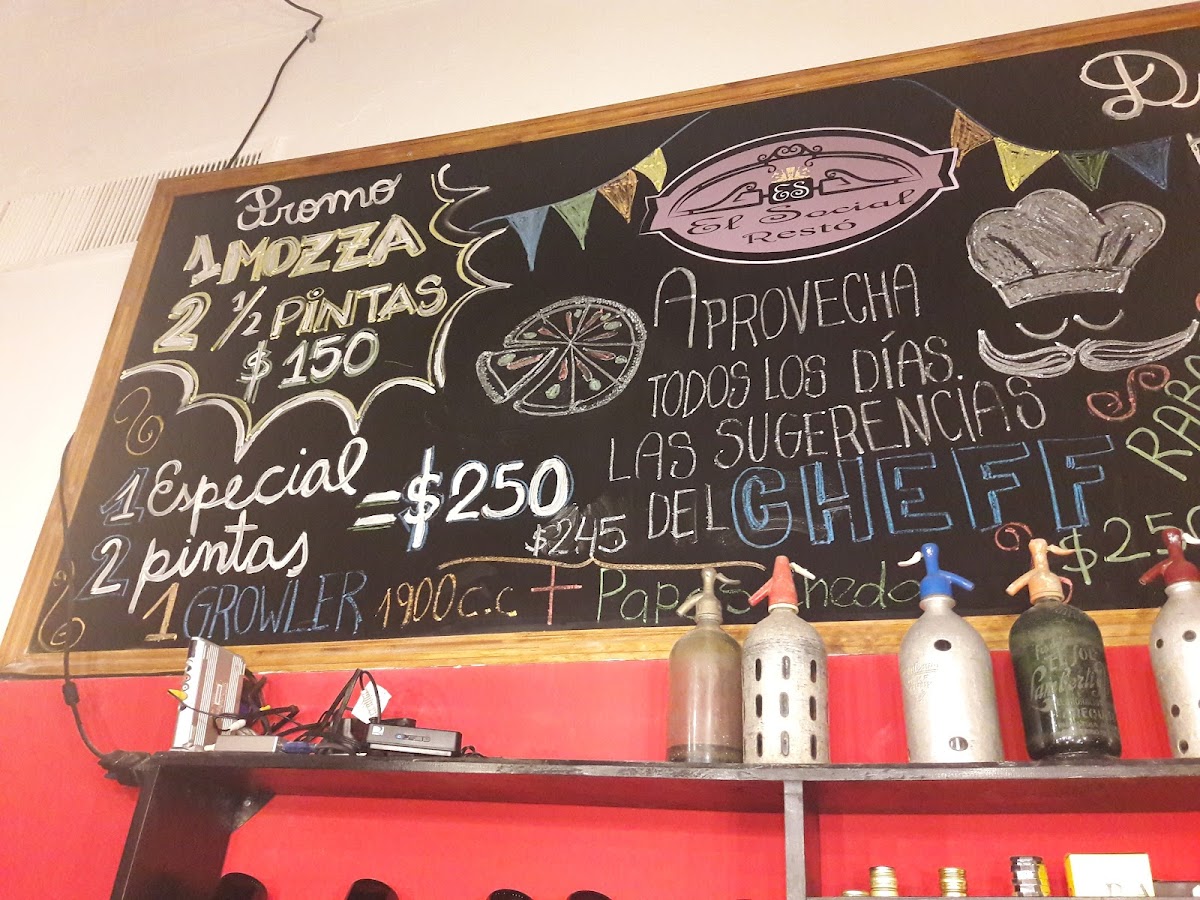 Promo
1 MOZZA
2 ½ PINTAS
$150
1 Especial
2 pintas
=$250
ES
El Social
Restó
APROVECHA
TODOS LOS DÍAS.
LAS SUGERENCIAS
DEL CHEFF
$245
1 GROWLER 1900 c.c + Papas
RAB
$25